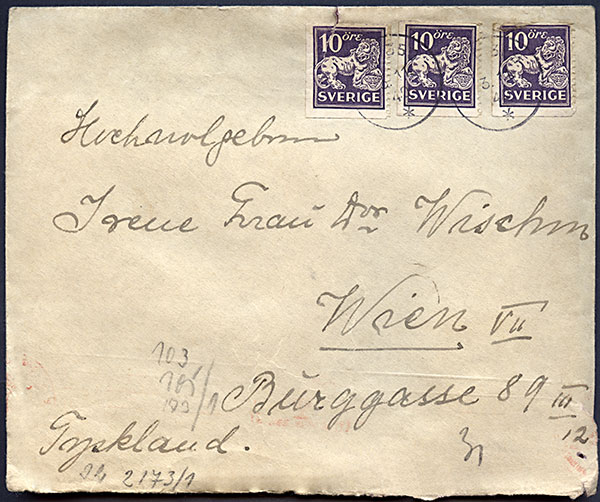 10 ÖRE SVERIGE 10 ÖRE SVERIGE 10 ÖRE SVERIGE
Hochwolgeboren
Irene Frau Dor Wischin
Wien VII
103
105
199/1
Burggasse 89 III
12
Tyskland.
2173/1